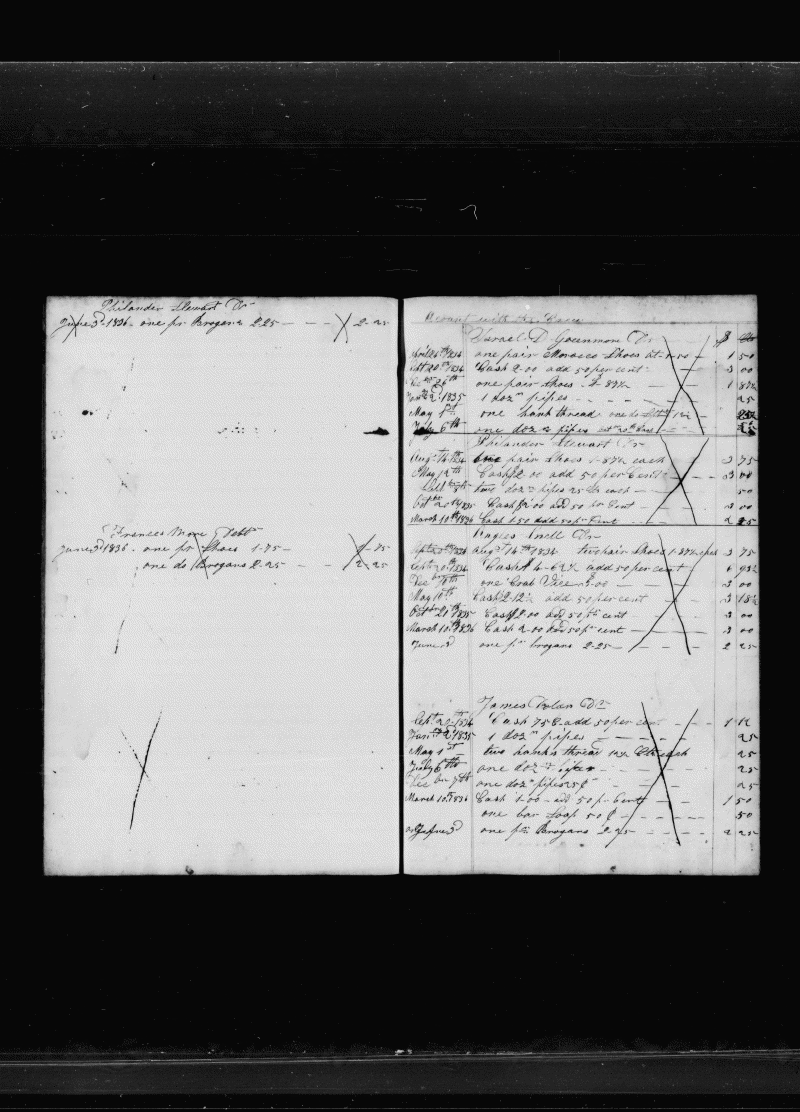 Philander Stewart Dr
June 3d 1836 - one pr Brogans 2.25 - - - 2-25
Frances More Debt
June 3d 1836 - one pr Shoes 1-75 - 1-75
one do Brogans 2-25 - 2-25
Acount with
Israel D Greenmore Dr $
April 26th 1834 one pair Morocco Shoes at 1-50 - 1 50
20th 1834 Cash 2-00 add 50 per cent - 3 00
Dec 26th one pair Shoes 1-87½ 1 87½
2d 1835 1 dozn pipes - - - - 25
May 1st one hank thread one do
July 6th one dozn pipes
Philander Stewart Dr
Augt 14th 1834 pair Shoes 1-87½ each 3 75
May 12th Cash 2 00 add 50 per Cent 3 00
8th two dozn pipes 25 cts each 50
Octbr 20th 1835 Cash 2 00 add 50 pr Cent 3 00
March 10th 1836 Cash 1.50 add 50 pr Cent 2 25
Dr
Augst 14th 1834 two pair Shoes 1-87½ 3 75
Sept 20th 1834 Cash 4-62½ add 50 per cent 6 93½
Dec 10th one Coat Vice 2-00 - 2 00
May 10th Cash 2-12½ add 50 per cent 3 18½
Octobr 21th 1835 Cash 2.00 add 50 pr cent 3 00
March 10th 1836 Cash 2-00 add 50 pr cent 3 00
June 3d one pr brogans 2-25 2 25
James Dolan Dr
Sept 20-1834 Cash 75 add 50 per cent 1 12
2d 1835 1 dozn pipes 25
May 1st two hanks thread 12½ Cts each 25
July 6th one dozn pipes 25
Dec 7th one dozn pipes 25¢ 25
March 10th 1836 Cash 1-00 - add 50 pr Cent 1 50
one bar Soap 50 ¢ 50
June 3d one pr Brogans 2-25 2 25